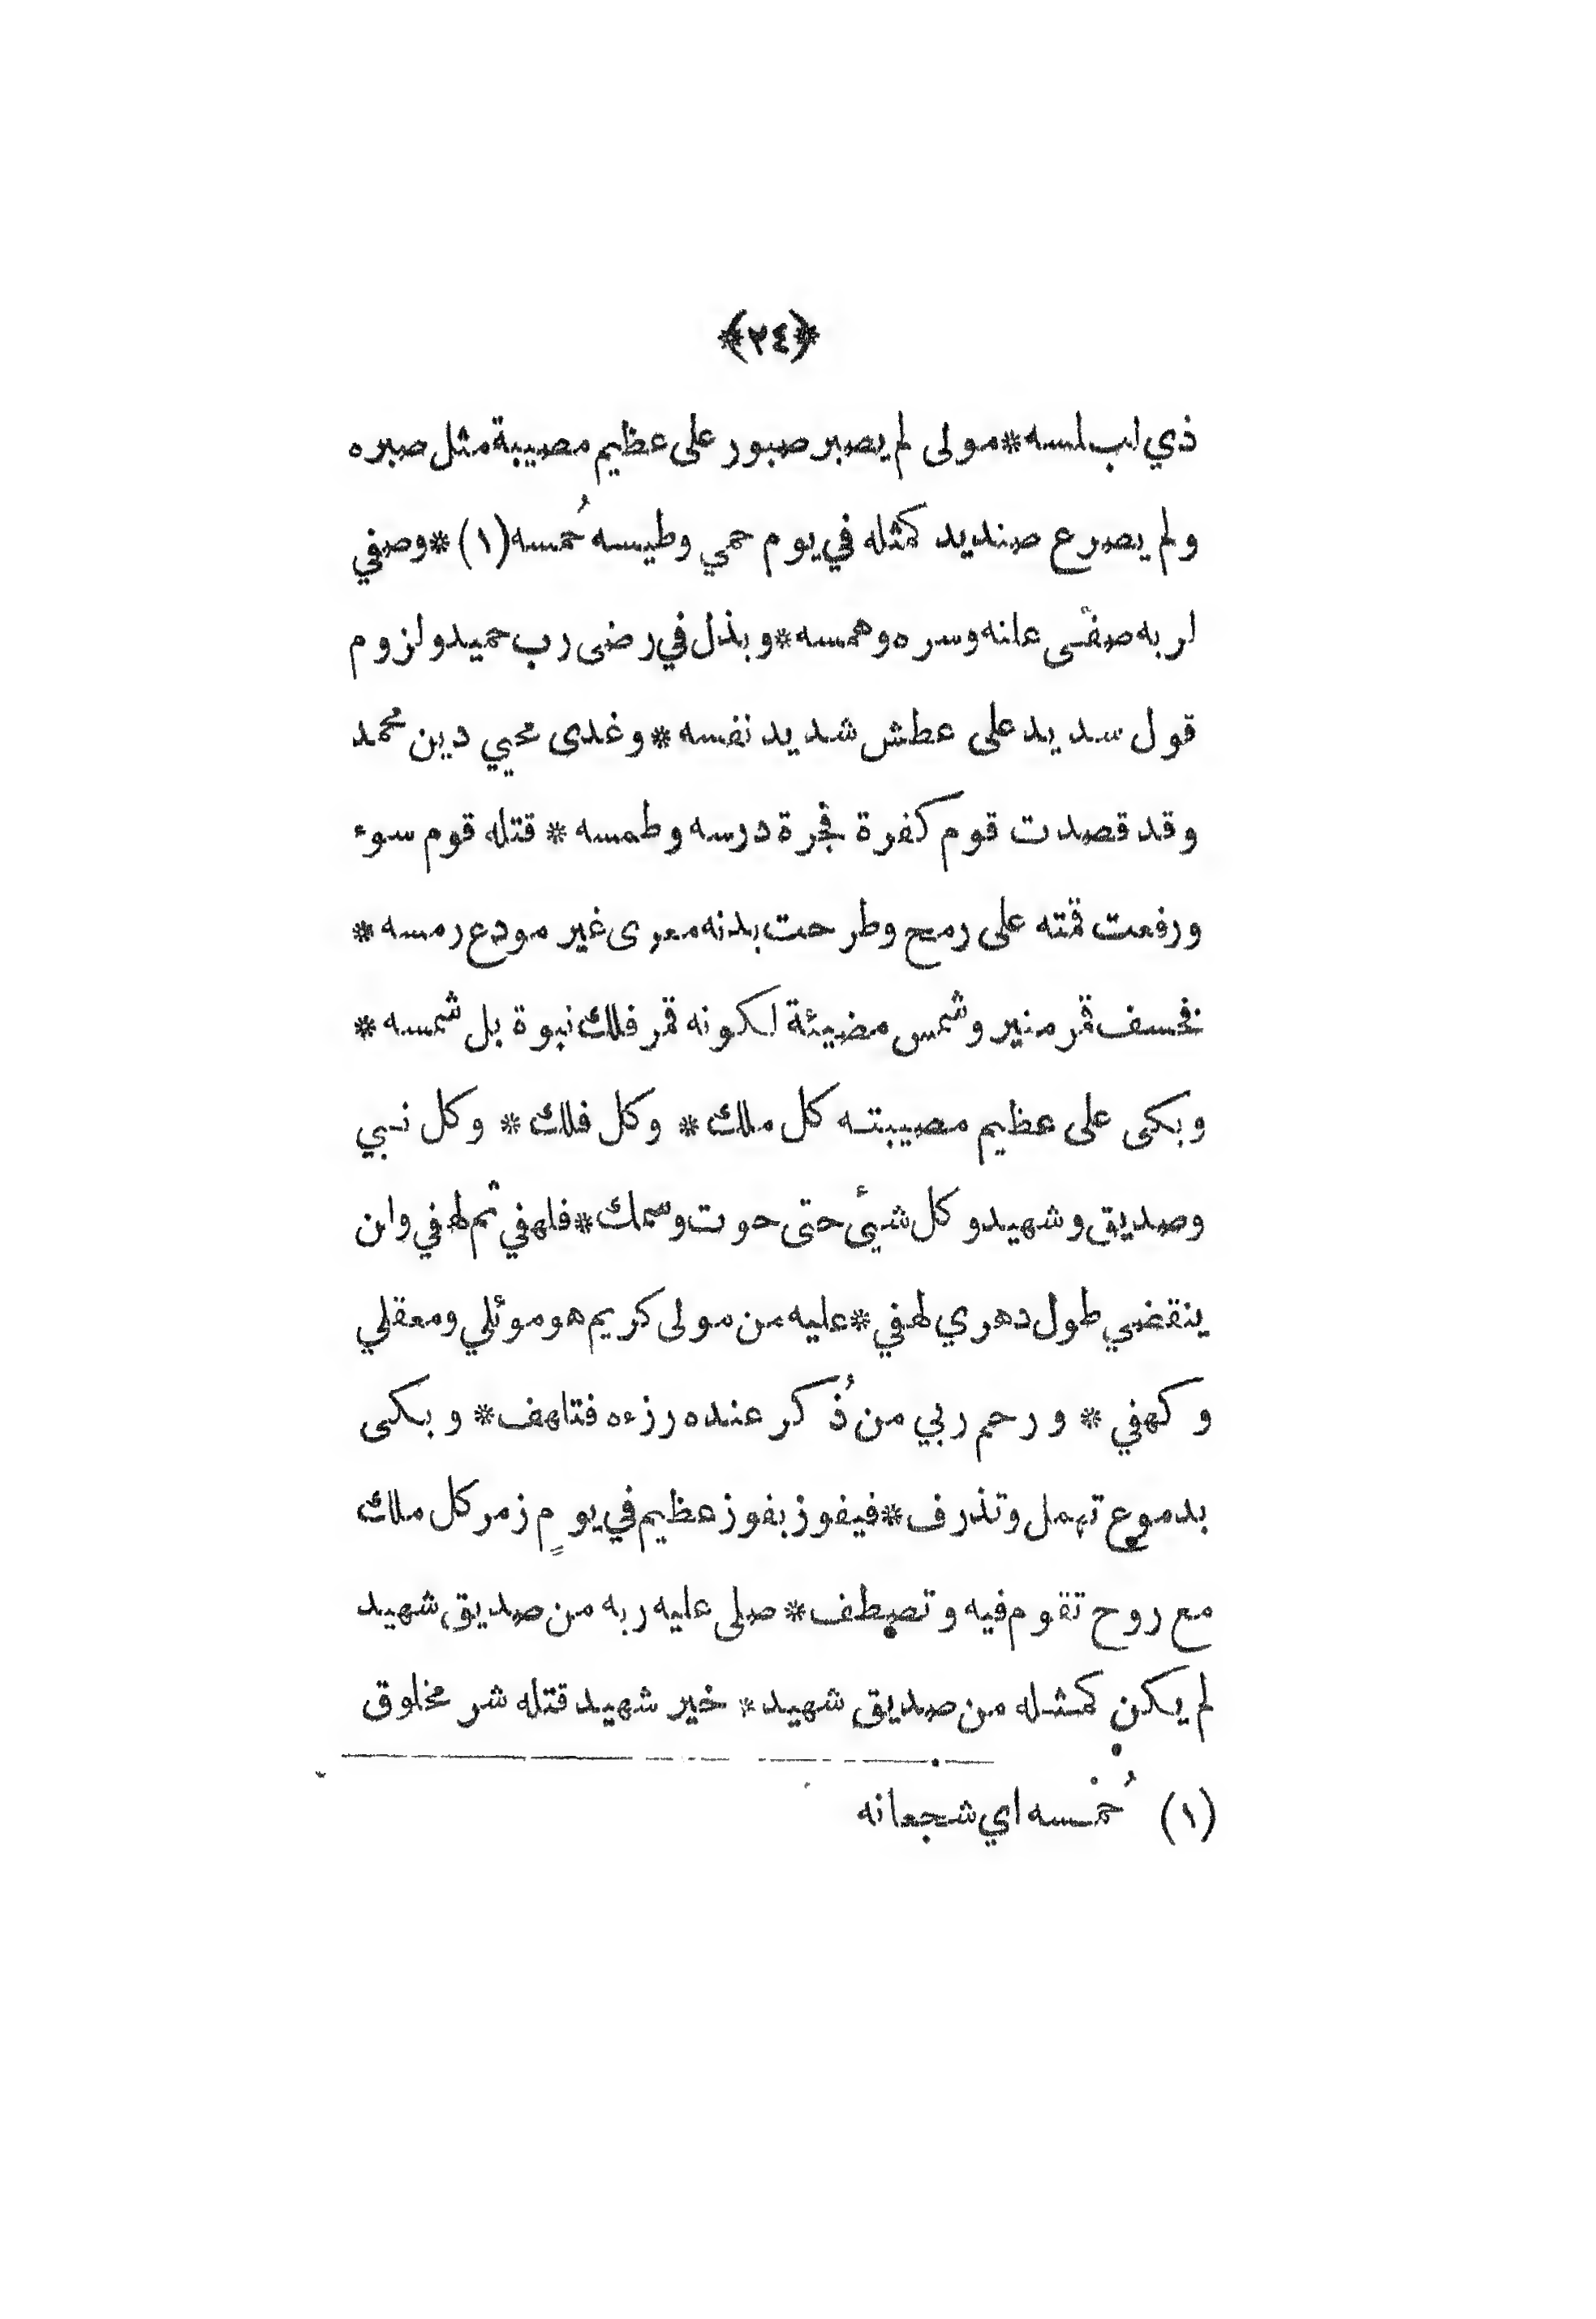 ﴿٢٤﴾
ذي لب لسه * مولى لم يصبر صبور على عظيم مصيبة مثل صبره
ولم يصرع صنديد كمثله في يوم حمي وطيسه حُمسه (١) * وصفي
لربه صفًى علنه وسره وهمسه * وبذل في رضى رب حميد ولزوم
قول سديد على عطش شديد نفسه * وغدى محيي دين محمد
وقد قصدت قوم كفرة فجرة درسه وطمسه * قتله قوم سوء
ورفعت قمته على رمح وطرحت بدنه معرى غير مودع رمسه *
فخسف قمر منير وشمس مضيئة لكونه قمر فلك نبوة بل شمسه *
وبكى على عظيم مصيبته كل ملك * وكل فلك * وكل نبي
وصديق وشهيد وكل شيئ حتى حوت وسمك * فلهفي ثم لهفي ولن
ينقضي طول دهري لهفي * عليه من مولى كريم هو موئلي ومعقلي
وكهفي * ورحم ربي من ذُكر عنده رزءه فتلهف * وبكى
بدموع تهمل وتذرف * فيفوز بفوز عظيم في يومٍ زمر كل ملك
مع روح تقوم فيه وتصطف * صلى عليه ربه من صديق شهيد
لم يكن كمثله من صديق شهيد * خير شهيد قتله شر مخلوق
(١) حُمْسه اي شجعانه